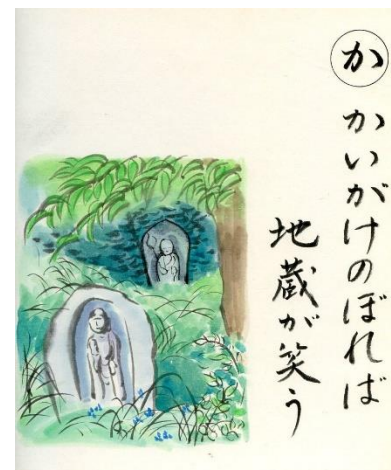 か
かいがけのぼれば
地蔵が笑う